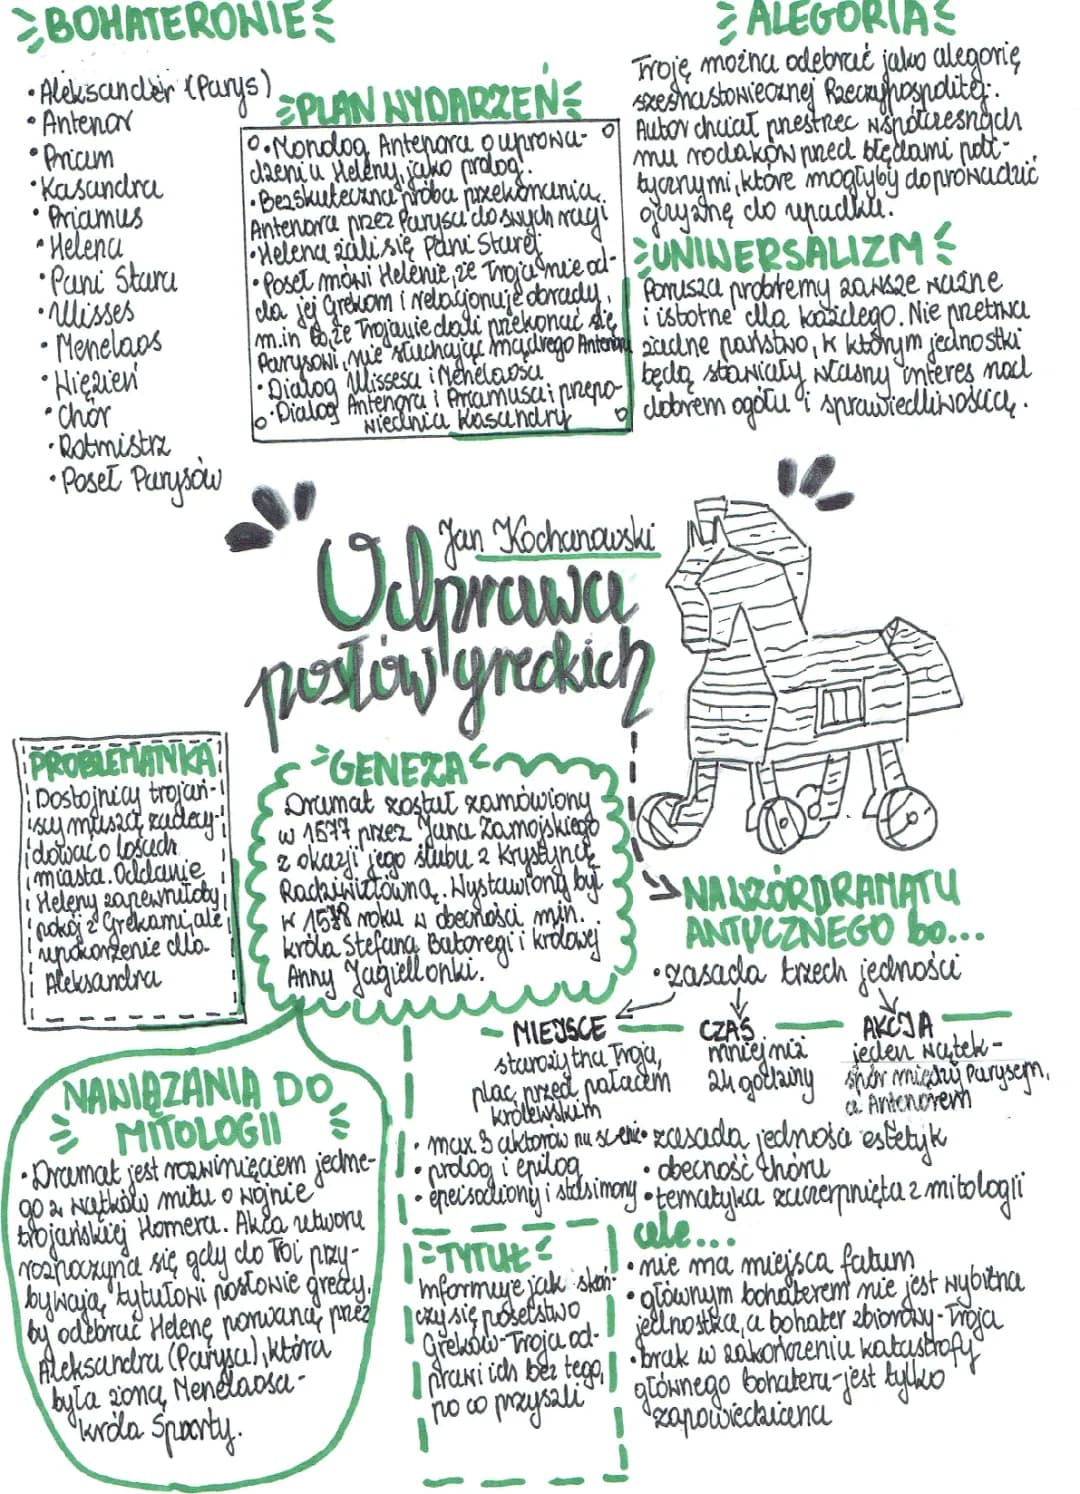 BOHATEROWIE
• Aleksander (Parys)
• Antenor
• Priam
• Kasandra
• Priamus
• Helena
• Pani Stara
• Ulisses
• Menelaos
• Więzień
• Chór
• Rotmistrz
• Poseł Parysów
PLAN WYDARZEŃ
• Monolog Antenora o uprowa-
dzeniu Heleny, jako prolog.
• Bezskuteczna próba przekonania
Antenora przez Parysa do swych racji
• Helena żali się Pani Starej
• Poseł mówi Helenie, że Troja nie od-
da jej Grekom i relacjonuje obrady,
m.in to, że Trojanie dali przekonać się
Parysowi, nie słuchając mądrego Antenora
• Dialog Ulissesa i Menelaosa
• Dialog Antenora i Priamusa i przepo-
wiednia Kasandry
ALEGORIA
Troję można odebrać jako alegorię
szesnastowiecznej Rzeczypospolitej.
Autor chciał przestrzec współczesnych
mu rodaków przed błędami poli-
tycznymi, które mogłyby doprowadzić
ojczyznę do upadku.
UNIWERSALIZM
Porusza problemy zawsze ważne
i istotne dla każdego. Nie przetrwa
żadne państwo, w którym jednostki
będą stawiały własny interes nad
dobrem ogółu i sprawiedliwością.
Jan Kochanowski
Odprawa
posłów greckich
PROBLEMATYKA
Dostojnicy trojań-
scy muszą zadecy-
dować o losach
miasta. Oddanie
Heleny zapewniłoby
pokój z Grekami, ale
upokorzenie dla
Aleksandra
GENEZA
Dramat został zamówiony
w 1577 przez Jana Zamojskiego
z okazji jego ślubu z Krystyną
Radziwiłłówną. Wystawiony był
w 1578 roku w obecności min.
króla Stefana Batorego i królowej
Anny Jagiellonki.
NA WZÓR DRAMATU
ANTYCZNEGO bo...
• zasada trzech jedności
MIEJSCE
starożytna Troja,
plac przed pałacem
królewskim
CZAS
mniej niż
24 godziny
AKCJA
jeden wątek -
spór między Parysem,
a Antenorem
• max. 3 aktorów na scenie
• prolog i epilog
• epeisodiony i stasimony
• zasada jedności estetyk
• obecność chóru
• tematyka zaczerpnięta z mitologii
NAWIĄZANIA DO
MITOLOGII
• Dramat jest rozwinięciem jedne-
go z wątków mitu o wojnie
trojańskiej Homera. Akcja utworu
rozpoczyna się gdy do Troi przy-
bywają tytułowi posłowie greccy,
by odebrać Helenę porwaną przez
Aleksandra (Parysa), która
była żoną Menelaosa -
króla Sparty.
TYTUŁ
Informuje jak skoń-
czy się poselstwo
Greków - Troja od-
prawi ich bez tego,
po co przyszli
ale...
• nie ma miejsca fatum
• głównym bohaterem nie jest wybitna
jednostka, a bohater zbiorowy - Troja
• brak w zakończeniu katastrofy
głównego bohatera - jest tylko
zapowiedziana